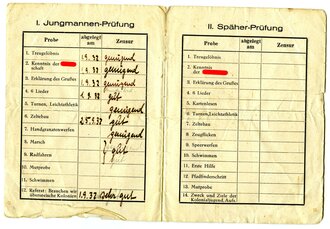 I. Jungmannen-Prüfung
Probe abgelegt am Zensur
1. Treugelöbnis 1.9.37 genügend
2. Kenntnis der
schaft 1.9.37 genügend
3. Erklärung des Grußes 1.9.37 genügend
4. 6 Lieder gut
5. Turnen, Leichtathletik genügend
6. Zeltebau gut
7. Handgranatenwerfen genügend
8. Marsch gut
9. Radfahren gut
10. Mutprobe
11. Schwimmen
12. Referat: Brauchen wir
überseeische Kolonien? 1.9.37 sehr gut
II. Späher-Prüfung
Probe abgelegt am Zensur
1. Treugelöbnis
2. Kenntnis
der
3. Erklärung des Grußes
4. 6 Lieder
5. Kartenlesen
6. Turnen, Leichtathletik
7. Zeltebau
8. Zeugflicken
9. Speerwerfen
10. Schwimmen
11. Erste Hilfe
12. Pfadfinderschritt
13. Mutprobe
14. Zweck und Ziele der
Kolonialjugend, Aufs.